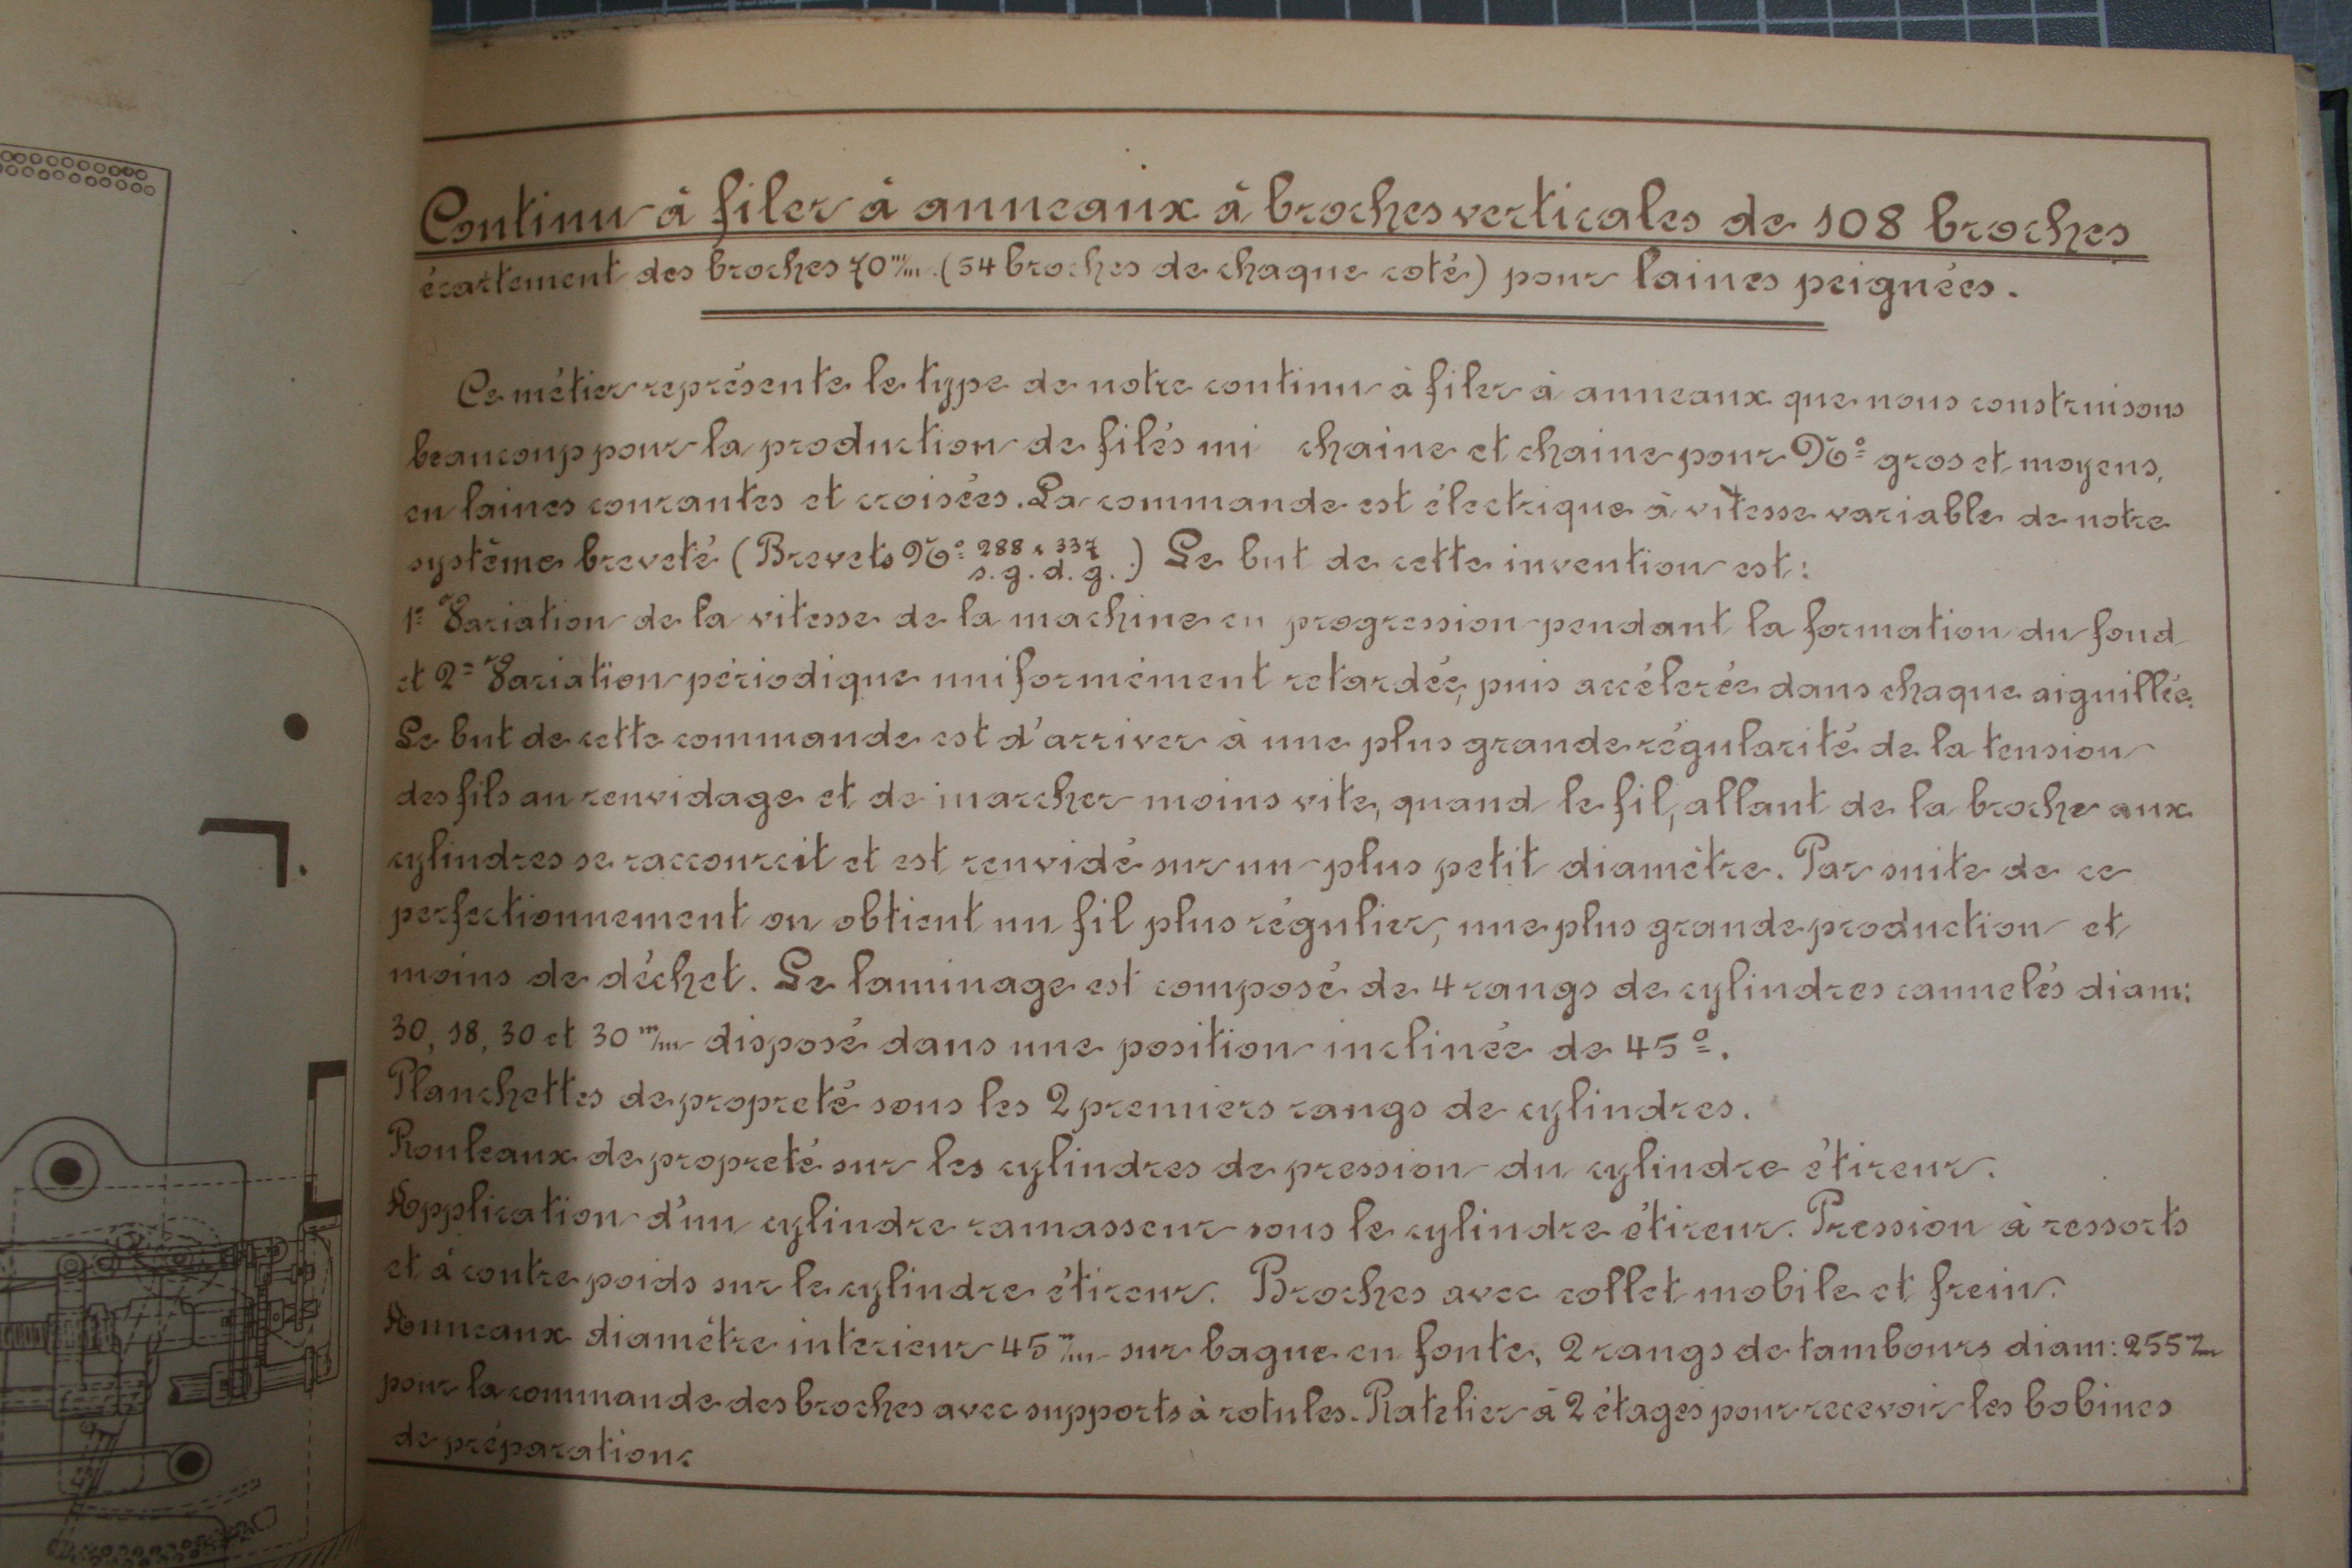 Continu à filer à anneaux à broches verticales de 108 broches
écartement des broches 70 m/m. (54 broches de chaque coté) pour laines peignées.
Ce métier représente le type de notre continu à filer à anneaux que nous construisons
beaucoup pour la production de filés mi chaine et chaine pour Nº gros et moyens,
en laines courantes et croisées. La commande est électrique à vitesse variable de notre
système breveté (Brevets Nº 288 x 337 s.g.d.g.) Le but de cette invention est:
1º Variation de la vitesse de la machine en progression pendant la formation du fond
et 2º Variation périodique uniformément retardée, puis accélerée dans chaque aiguillée.
Le but de cette commande est d'arriver à une plus grande régularité de la tension
des fils au renvidage et de marcher moins vite, quand le fil, allant de la broche aux
cylindres se raccourcit et est renvidé sur un plus petit diamètre. Par suite de ce
perfectionnement on obtient un fil plus régulier, une plus grande production et
moins de déchet. Le laminage est composé de 4 rangs de cylindres cannelés diam:
30, 18, 30 et 30 m/m disposé dans une position inclinée de 45º.
Planchettes de propreté sous les 2 premiers rangs de cylindres.
Rouleaux de propreté sur les cylindres de pression du cylindre étireur.
Application d'un cylindre ramasseur sous le cylindre étireur. Pression à ressorts
et à contre poids sur le cylindre étireur. Broches avec collet mobile et frein.
Anneaux diamètre interieur 45 m/m sur bague en fonte, 2 rangs de tambours diam: 255 m/m
pour la commande des broches avec supports à rotules. Ratelier à 2 étages pour recevoir les bobines
de préparation.